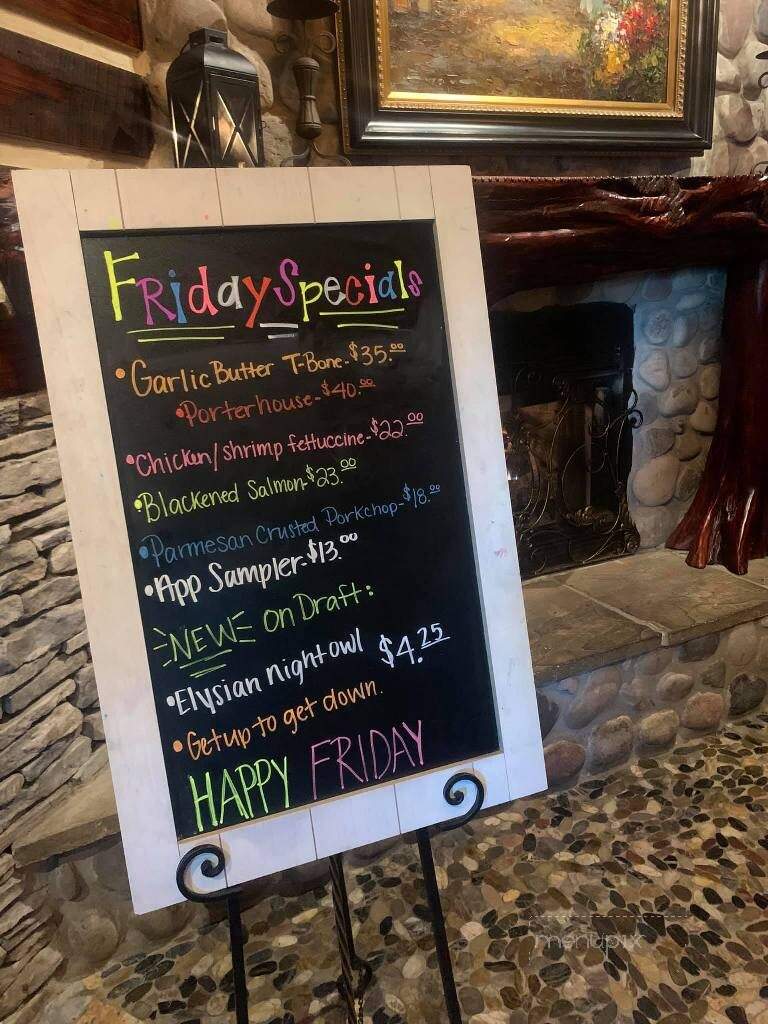 Friday Specials
• Garlic Butter T-Bone-$35.00
• Porterhouse-$40.00
• Chicken/shrimp fettuccine-$22.00
• Blackened Salmon-$23.00
• Parmesan Crusted Porkchop-$18.00
• App Sampler-$13.00
NEW on Draft:
• Elysian night owl $4.25
• Get up to get down.
HAPPY FRIDAY
menupix